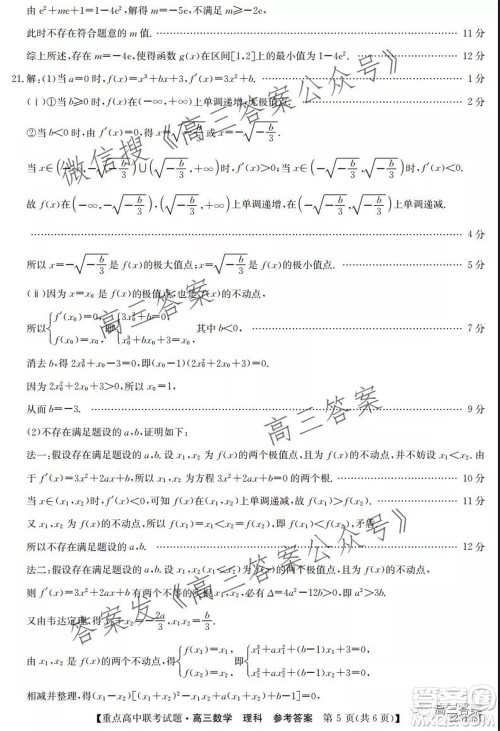 由 e²+me+1=1-4e²,解得 m=-5e,不满足 m≥-2e,
此时不存在符合题意的 m 值. 11 分
综上所述,存在 m=-2-4e²,使得函数 g(x)在区间[1,2]上的最小值为 1-4e². 12 分
21.解:(1)当 a=0 时,f(x)=x³+bx+3,f′(x)=3x²+b. 1 分
(ⅰ)①当 b≥0 时,f(x)在(-∞,+∞)上单调递增,无极值点; 2 分
②当 b<0 时,由 f′(x)=0,得 x=√(-b/3)或 x=-√(-b/3).
当 x∈(-∞,-√(-b/3))∪(√(-b/3),+∞)时,f′(x)>0;当 x∈(-√(-b/3),√(-b/3))时,f′(x)<0.
故 f(x)在(-∞,-√(-b/3)),(√(-b/3),+∞)上单调递增,在(-√(-b/3),√(-b/3))上单调递减.
4 分
所以 x=-√(-b/3)是 f(x)的极大值点;x=√(-b/3)是 f(x)的极小值点. 5 分
(ⅱ)因为 x=x₀ 是 f(x)的极值点,x=x₀ 是 f(x)的不动点,
所以{f′(x₀)=0, f(x₀)=x₀, 即{3x₀²+b=0, x₀³+bx₀+3=x₀, 其中 b<0, 7 分
消去 b,得 2x₀³+x₀-3=0,即(x₀-1)(2x₀²+2x₀+3)=0.
因为 2x₀²+2x₀+3>0,所以 x₀=1.
从而 b=-3. 9 分
(2)不存在满足题设的 a,b,证明如下:
法一:假设存在满足题设的 a,b,则 x₁,x₂ 为 f(x)的极值点和不动点,并不妨设 x₁<x₂.由
于 f′(x)=3x²+2ax+b,所以 x₁,x₂ 为 f′(x)=3x²+2ax+b=0 的两个根. 10 分
当 x∈(x₁,x₂)时,f′(x)<0,f(x)在(x₁,x₂)上单调递减,故 f(x₁)>f(x₂).
又 x₁,x₂ 为 f(x)的不动点,所以 f(x₁)=x₁<x₂=f(x₂),矛盾.
所以不存在满足题设的 a,b. 12 分
法二:假设存在满足题设的 a,b,则 x₁,x₂ 为 f(x)的极值点和不动点,
则 f′(x)=3x²+2ax+b=0 有两个不等的实根 x₁,x₂,必有 Δ=4a²-12b>0,即 a²>3b.
又由韦达定理,得{x₁+x₂=-2a/3, x₁x₂=b/3. 由{f(x₁)=x₁, f(x₂)=x₂, 得{x₁³+ax₁²+(b-1)x₁+3=0, x₂³+ax₂²+(b-1)x₂+3=0,
【重点高中联考试题·高三数学 理科 参考答案 第 5 页(共 6 页)】
微信搜《高三答案公众号》
高三答案
高三答案
答案发《高三答案公众号》
高三答案